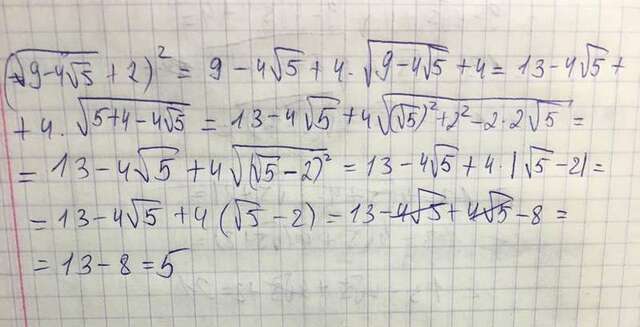 (√(9-4√5) + 2)² = 9 - 4√5 + 4 · √(9-4√5) + 4 = 13 - 4√5 +
+ 4 · √(5+4-4√5) = 13 - 4√5 + 4√((√5)² + 2² - 2·2√5) =
= 13 - 4√5 + 4√((√5 - 2)²) = 13 - 4√5 + 4 · |√5 - 2| =
= 13 - 4√5 + 4(√5 - 2) = 13 - 4√5 + 4√5 - 8 =
= 13 - 8 = 5